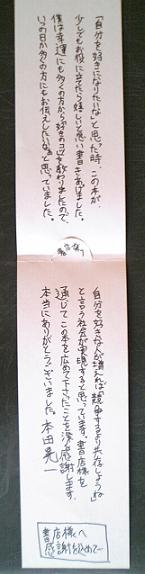 「自分を好きになりたいな」と思った時、この本が、
少しでもお役に立てたら嬉しいと思い書きあげました。
僕は幸運にも多くの方から好きのコツを教わりましたので、
いつの日か多くの方にもお伝えしたいな、と思っていました。
「自分を好きな人が増えれば競争するより共存しようね」
と言う社会が実現すると思っています。書店様を
通じてこの本を広めて下さったことを深く感謝します。
本当にありがとうございました。本田晃一
書店様へ
感謝を込めて